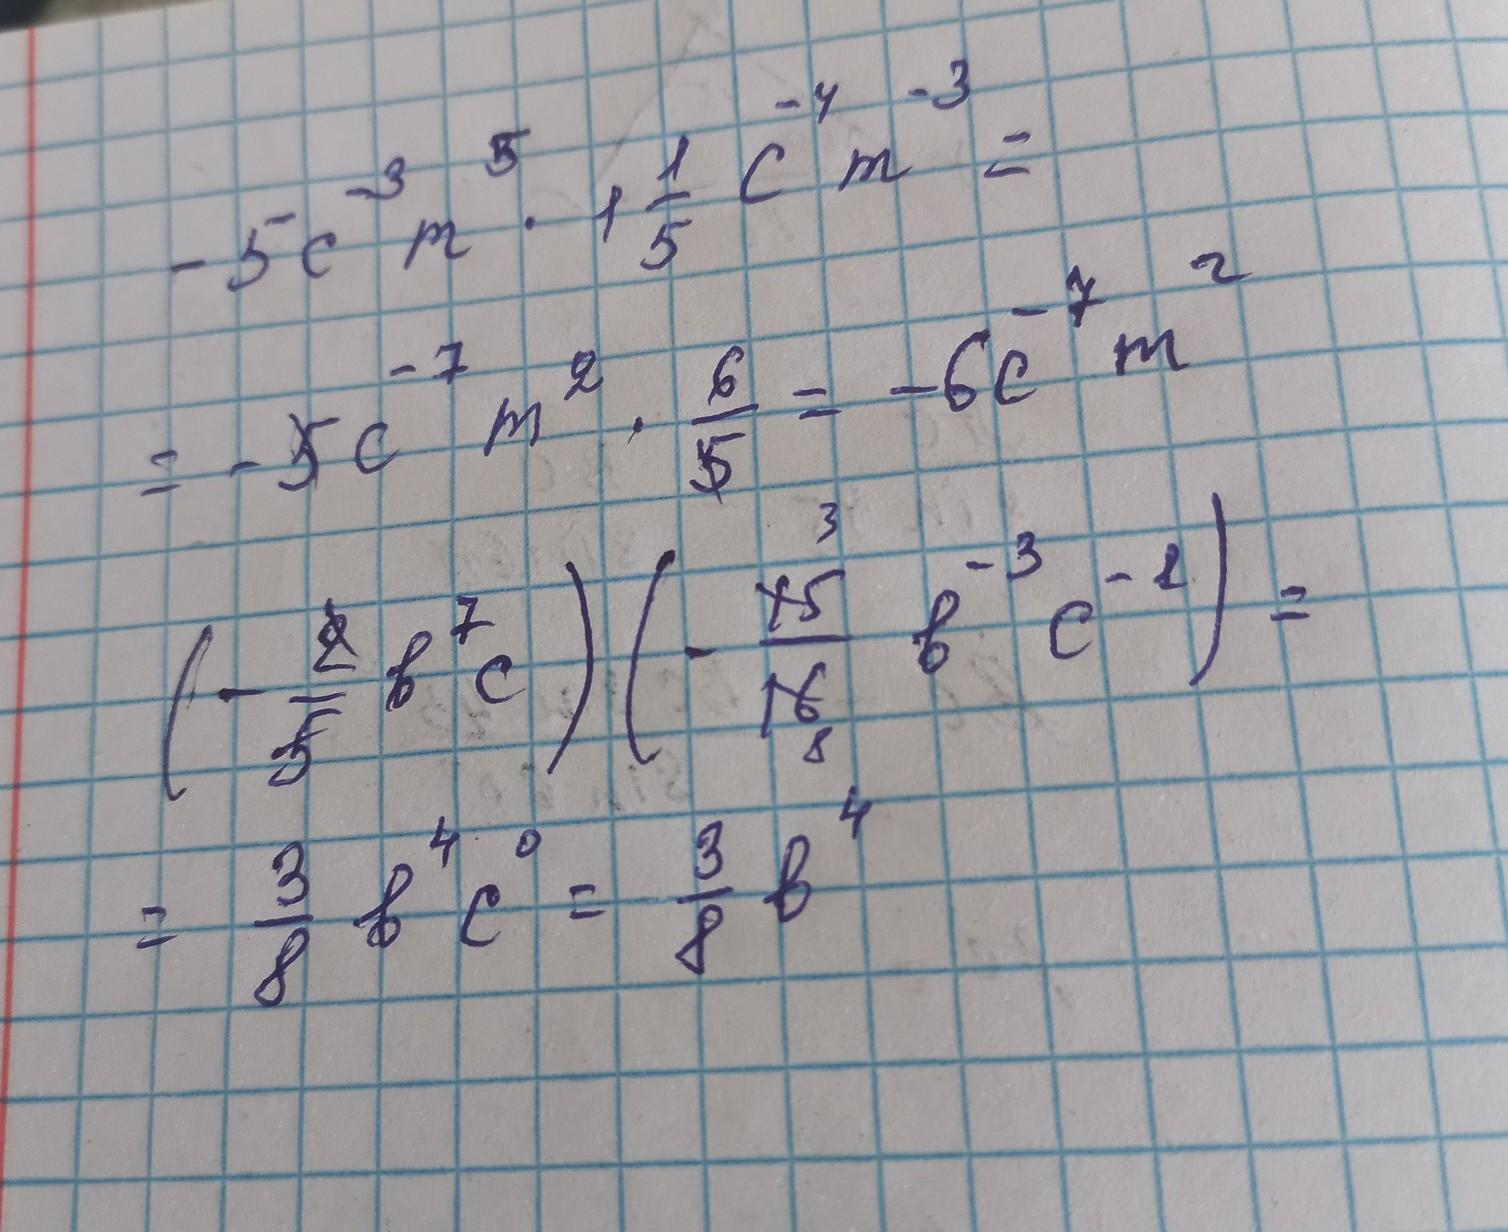 -5c⁻³m⁵ · 1 1/5 c⁻⁴m⁻³ =
= -5c⁻⁷m² · 6/5 = -6c⁻⁷m²
(- 2/5 в⁷c)(- 15/16 в⁻³c⁻¹) =
3
8
= 3/8 в⁴c⁰ = 3/8 в⁴